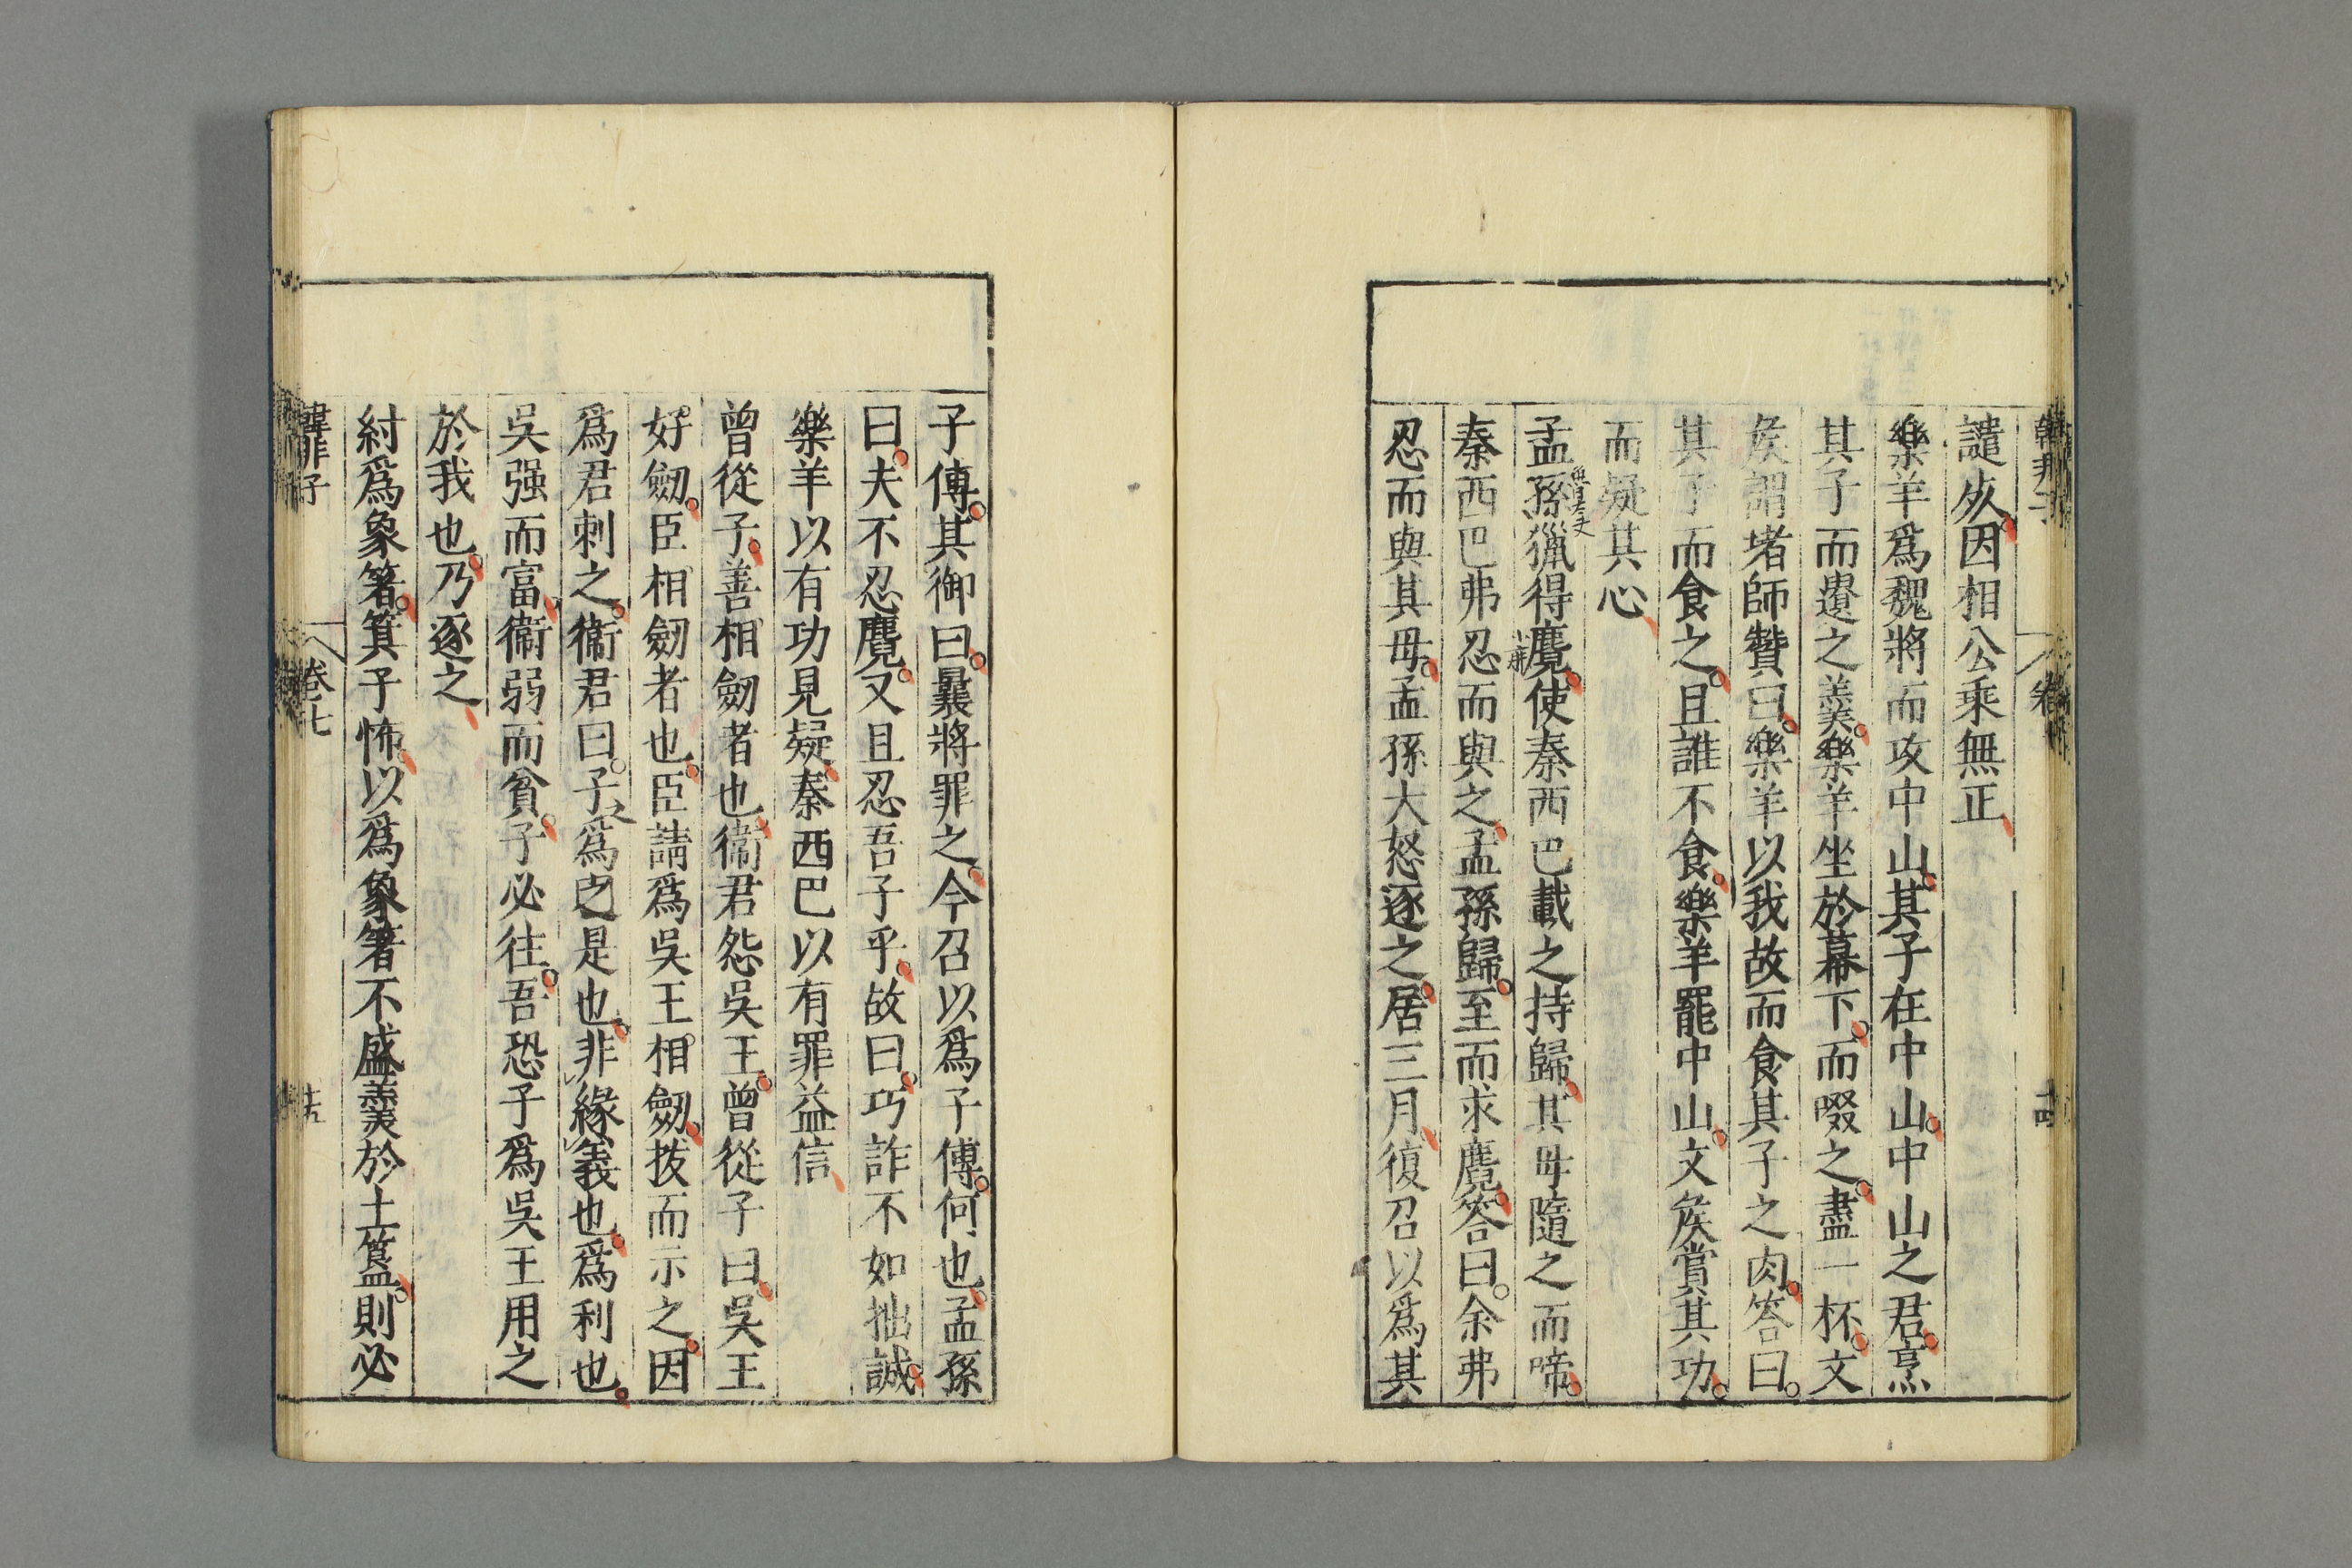 譴㕁因相公乘無正
樂羊爲魏將而攻中山其子在中山中山之君烹
其子而遺之羹樂羊坐於幕下而啜之盡一杯文
矦謂堵師贊曰樂羊以我故而食其子之肉答曰
其子而食之且誰不食樂羊罷中山文矦賞其功
而疑其心
孟孫獵得麑使秦西巴載之持歸其母隨之而啼
秦西巴弗忍而與之孟孫歸至而求麑答曰余弗
忍而與其母孟孫大怒逐之居三月復召以爲其
子傅其御曰曩將罪之今召以爲子傅何也孟孫
曰夫不忍麑又且忍吾子乎故曰巧詐不如拙誠
樂羊以有功見疑秦西巴以有罪益信
曾從子善相劒者也衞君怨吳王曾從子曰吳王
好劒臣相劒者也臣請爲吳王相劒拔而示之因
爲君刺之衞君曰子爲之是也非緣義也爲利也
吳强而富衞弱而貧子必往吾恐子爲吳王用之
於我也乃逐之
紂爲象箸箕子怖以爲象箸不盛羹於土簋則必
韓非子 卷七